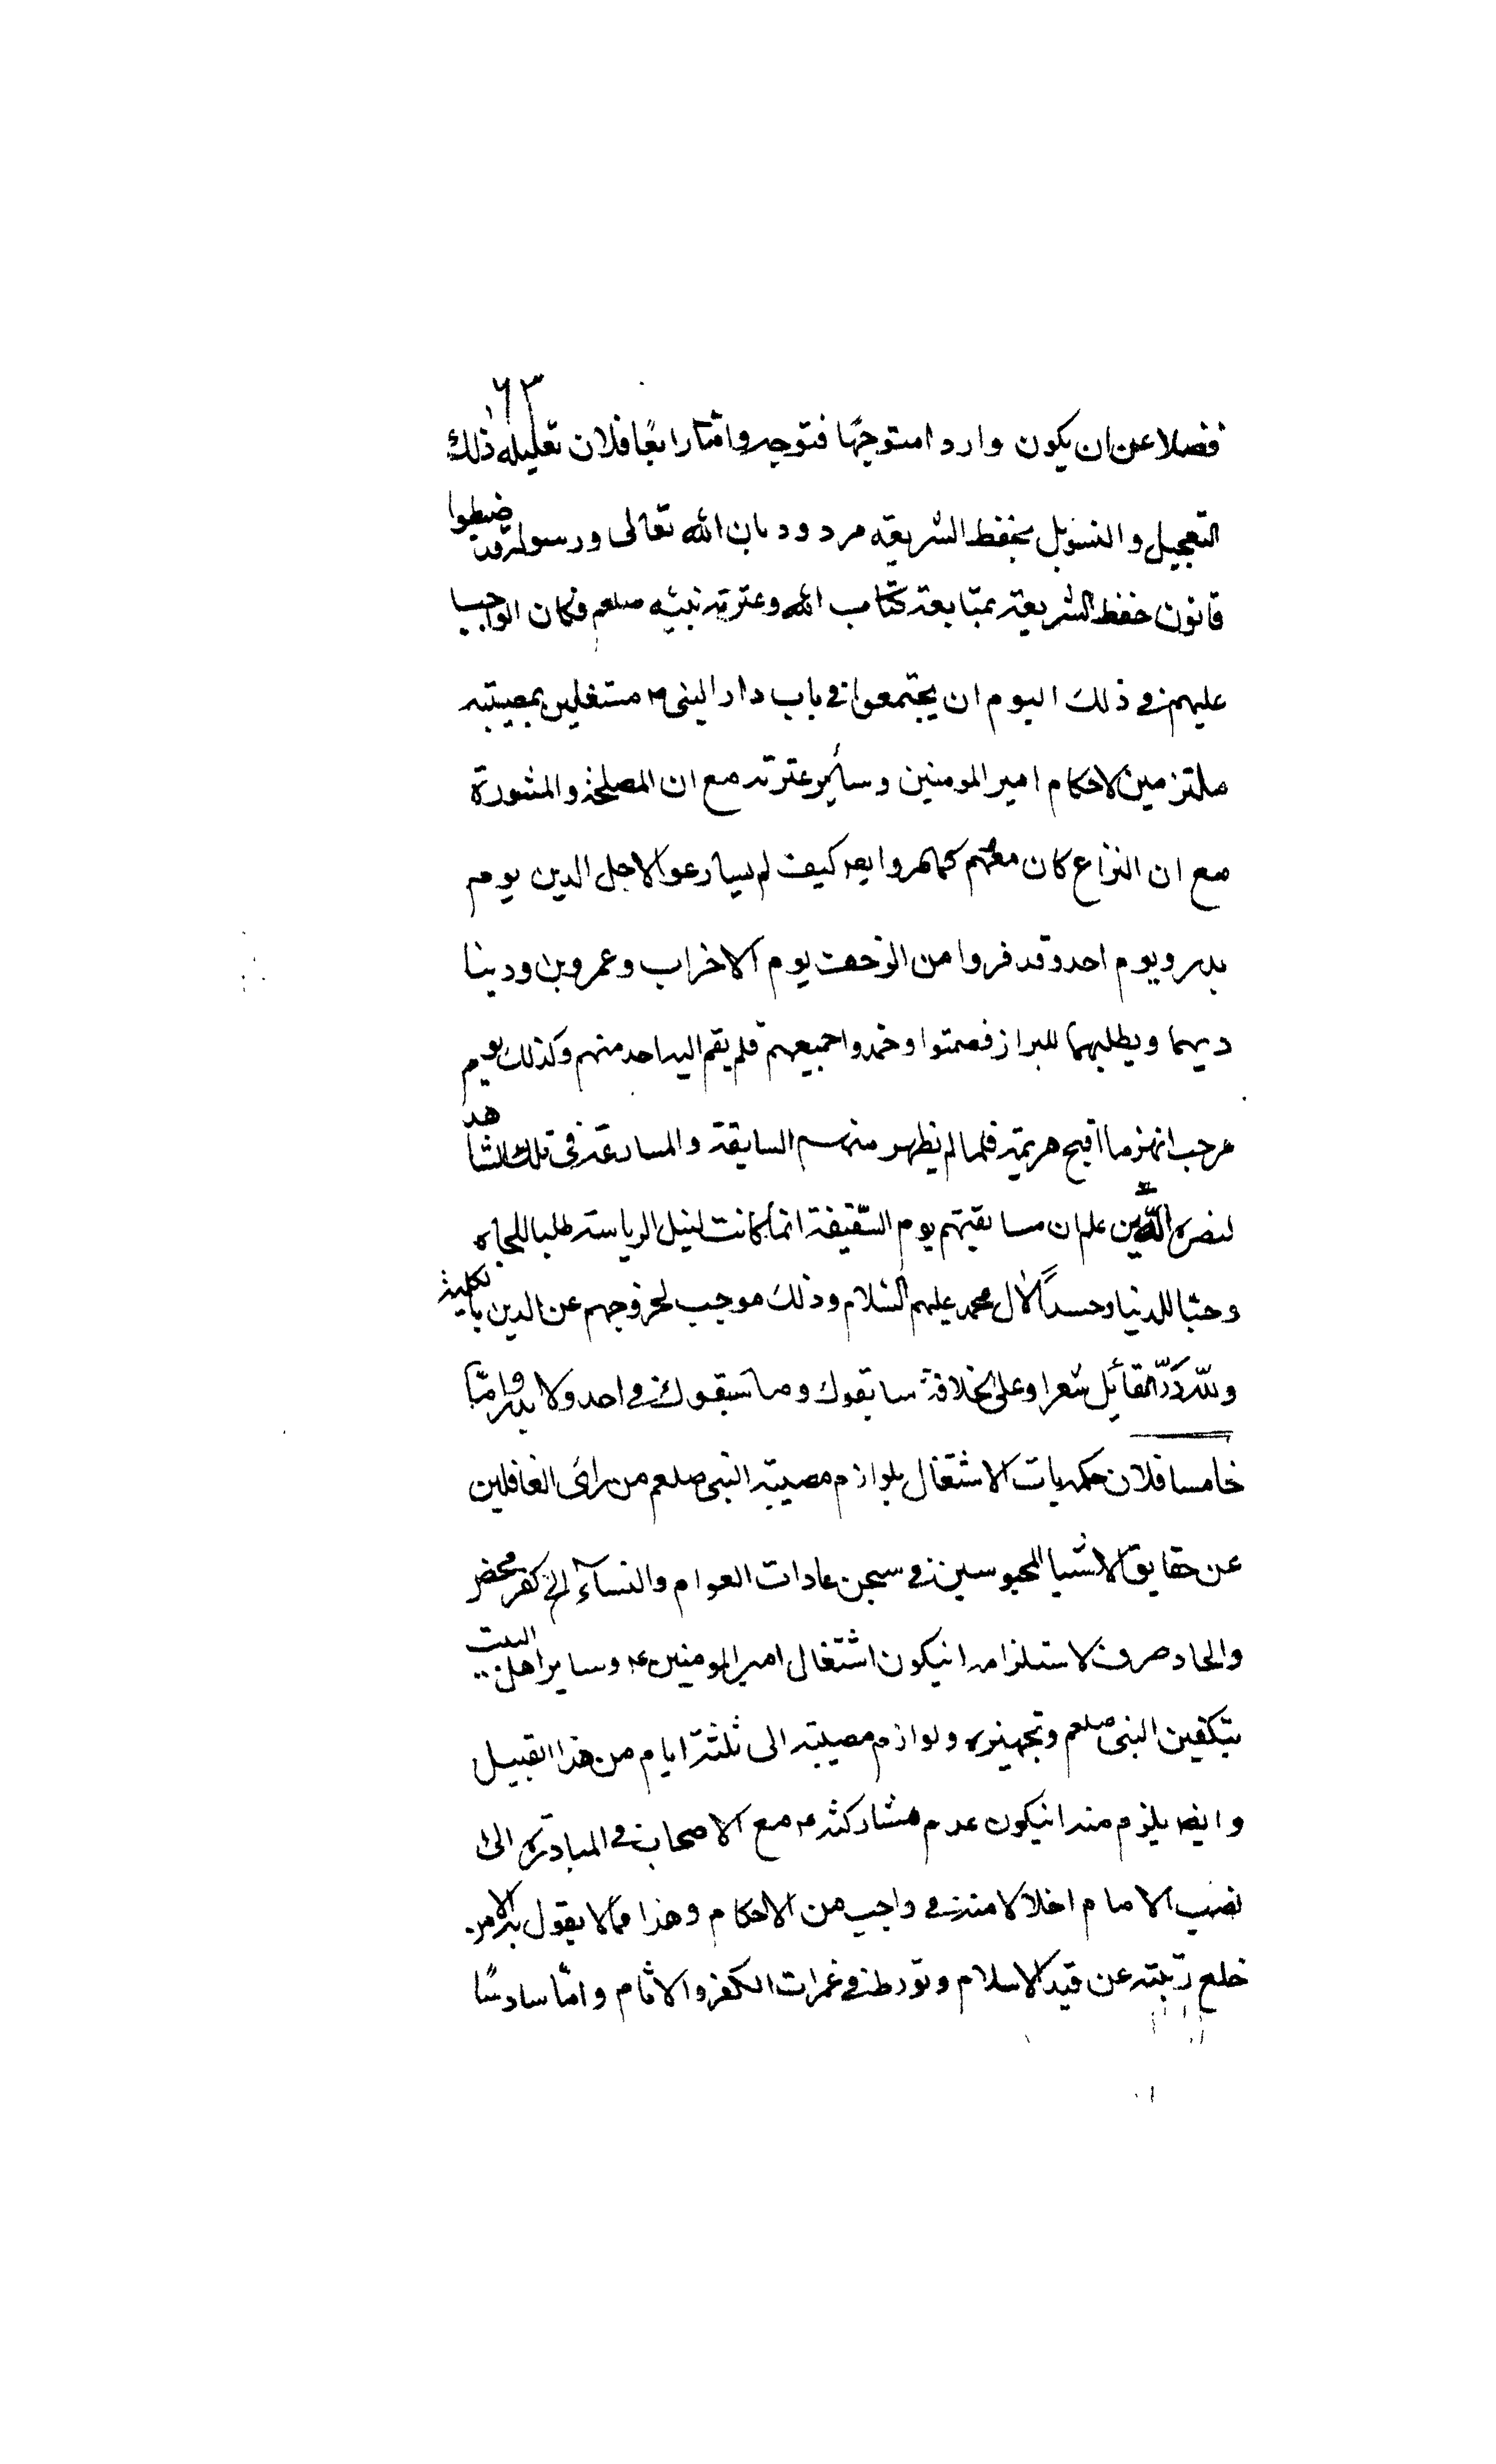 ٦٣
فضلا عن ان يكون واردا متوجّها فتوجه واما رابعًا فلان تعليله ذلك
التعجيل والتسويل بحفظ الشريعة مردود بان الله تعالى ورسوله قد ضبطوا
قانون حفظ الشريعة بمتابعة كتاب الله وعترته نبيّه صلعم فكان الواجب
عليهم في ذلك اليوم ان يجتمعوا في باب دار النبي ص مشتغلين بمصيبته
ملتزمين لاحكام امير المومنين وسائر عترته مع ان المصلحة والمشورة
مع ان النزاع كان معهم كما مر وايضه كيف لم يسارعوا لاجل الدين يوم
بدر ويوم احد وقد فروا من الزحف يوم الاحزاب وعمرو بن ود ينا
ديهما ويطلبهما للبراز فصمتوا وخمدوا جميعهم فلم يقم اليه احد منهم وكذلك يوم
مرحب انهزما اقبح هزيمة فلما لم يظهر منهم السابقة والمسارعة في تلك المشاهد
لنصره الدّين علم ان مسابقتهم يوم السّقيفة انما كانت لنيل الرياسة طلبا للجاه
وحبّا للدنيا وحسداً لآل محمد عليهم السّلام وذلك موجب لخروجهم عن الدين بالكلية
ولله درّ القائل شعرا وعلى الخلافة سابقوك وما سبقوك في احد ولا بدر وامّا
خامسا فلان حكمه بان الاشتغال بلوازم مصيبة النبي صلعم من رائ الغافلين
عن حقايق الاشيا المحبوسين في سجن عادات العوام والنسآء الخ كفر محض
والحاد صرف لاستلزامه انيكون اشتغال امير المومنين ع وساير اهل البيت
بتكفين النبي صلعم وتجهيزه ولوازم مصيبته الى ثلثة ايام من هذا القبيل
وايضه يلزم منه انيكون عدم مشاركته ع مع الاصحاب في المبادرة الى
نصب الامام اخلالا منه في واجب من الاحكام وهذا مما لا يقول به الا من
خلع ربقته عن قيد الاسلام وتورط في غمرات الكفر والاثام وامّا سادسًا